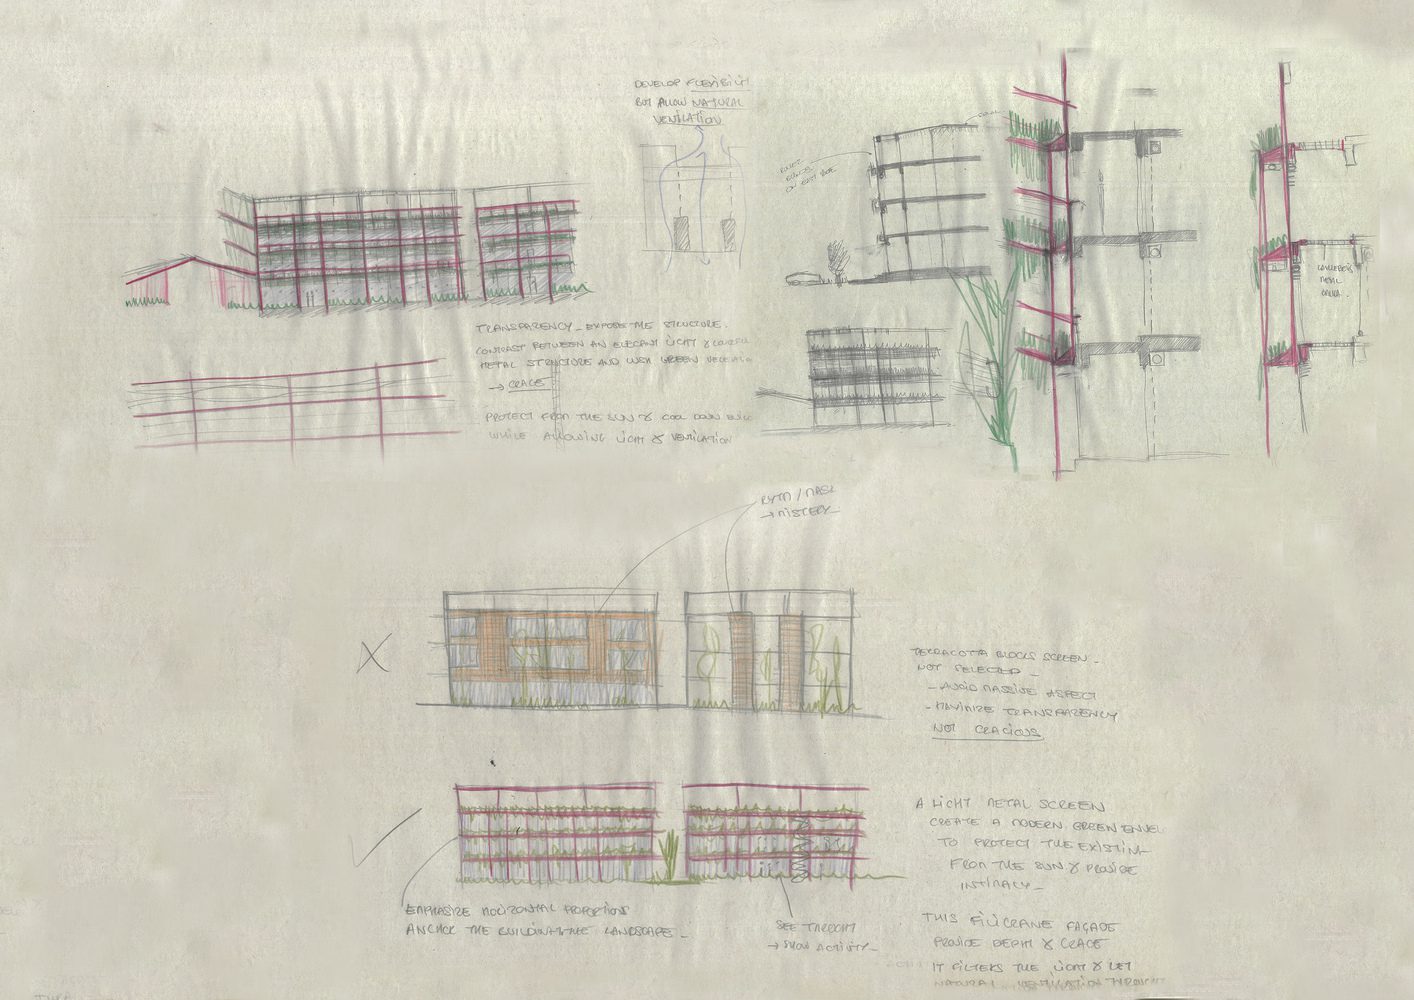 DEVELOP FLEXIBILIT
BUT ALLOW NATURAL
VENTILATION
ON EAST SIDE
TRANSPARENCY_ EXPOSE THE STRUCTURE.
CONTRAST BETWEEN AN ELEGANT LIGHT & COLORFUL
METAL STRUCTURE AND LUSH GREEN VEGETATIO
→ GRACE
PROTECT FROM THE SUN & COOL DOWN BUIL
WHILE ALLOWING LIGHT & VENTILATION
METAL
RYTM / MASK
→ MISTERY_
X
TERRACOTTA BLOCKS SCREEN_
NOT SELECTED_
- AVOID MASSIVE ASPECT
- MAXIMIZE TRANSPARENCY
NOT GRACIOUS
A LIGHT METAL SCREEN
CREATE A MODERN GREEN ENVEL
TO PROTECT THE EXISTING
FROM THE SUN & PROVIDE
INTIMACY_
EMPHASIZE HORIZONTAL PROPORTIONS
ANCHOR THE BUILDING IN THE LANDSCAPE_
SEE THROUGH
→ SHOW ACTIVITY_
THIS FILIGRANE FAÇADE
PROVIDE DEPTH & GRACE
IT FILTERS THE LIGHT & LET
NATURAL VENTILATION THROUGHT